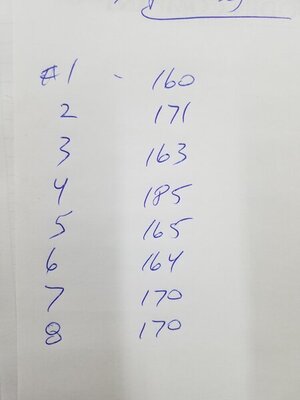 #1 - 160
2 171
3 163
4 185
5 165
6 164
7 170
8 170